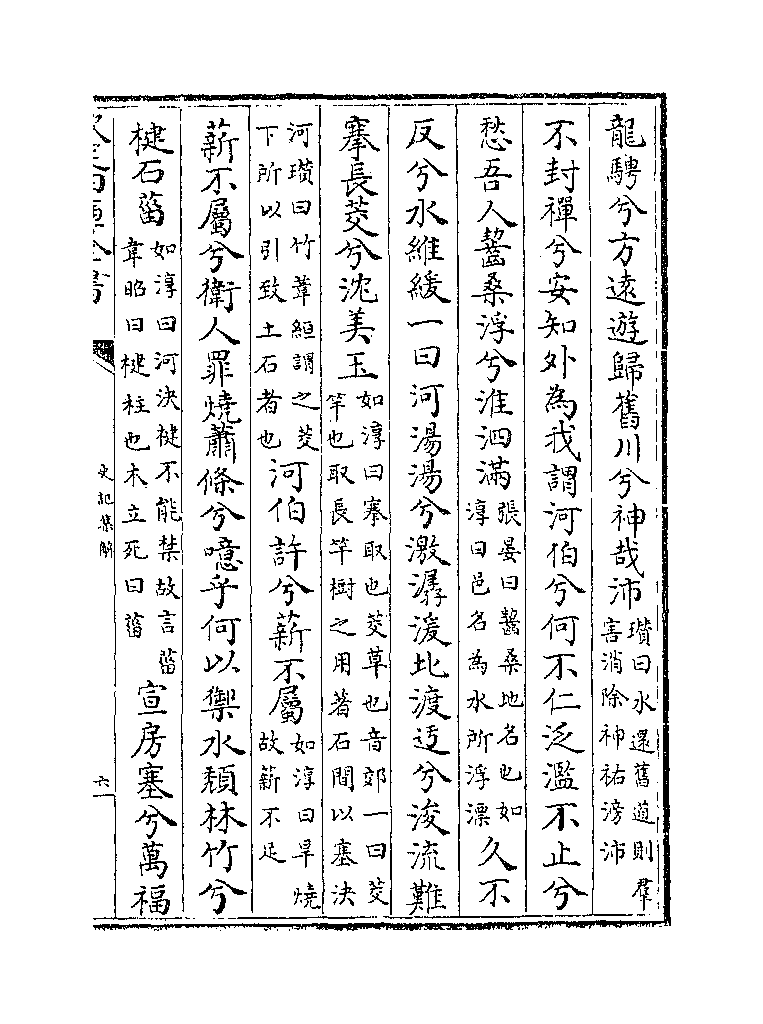 龍騁兮方遠遊歸舊川兮神哉沛瓚曰水還舊道則羣害消除神祐滂沛
不封禪兮安知外為我謂河伯兮何不仁泛濫不止兮
愁吾人齧桑浮兮淮泗滿張晏曰齧桑地名也如淳曰邑名為水所浮漂久不
反兮水維緩一曰河湯湯兮激潺湲北渡迃兮浚流難
搴長茭兮沈美玉如淳曰搴取也茭草也音郊一曰茭竿也取長竿樹之用著石間以塞決
河瓚曰竹葦絙謂之茭下所以引致土石者也河伯許兮薪不屬如淳曰旱燒故薪不足
薪不屬兮衛人罪燒蕭條兮噫乎何以禦水頹林竹兮
楗石菑如淳曰河決楗不能禁故言菑韋昭曰楗柱也木立死曰菑宣房塞兮萬福
史記集解
六